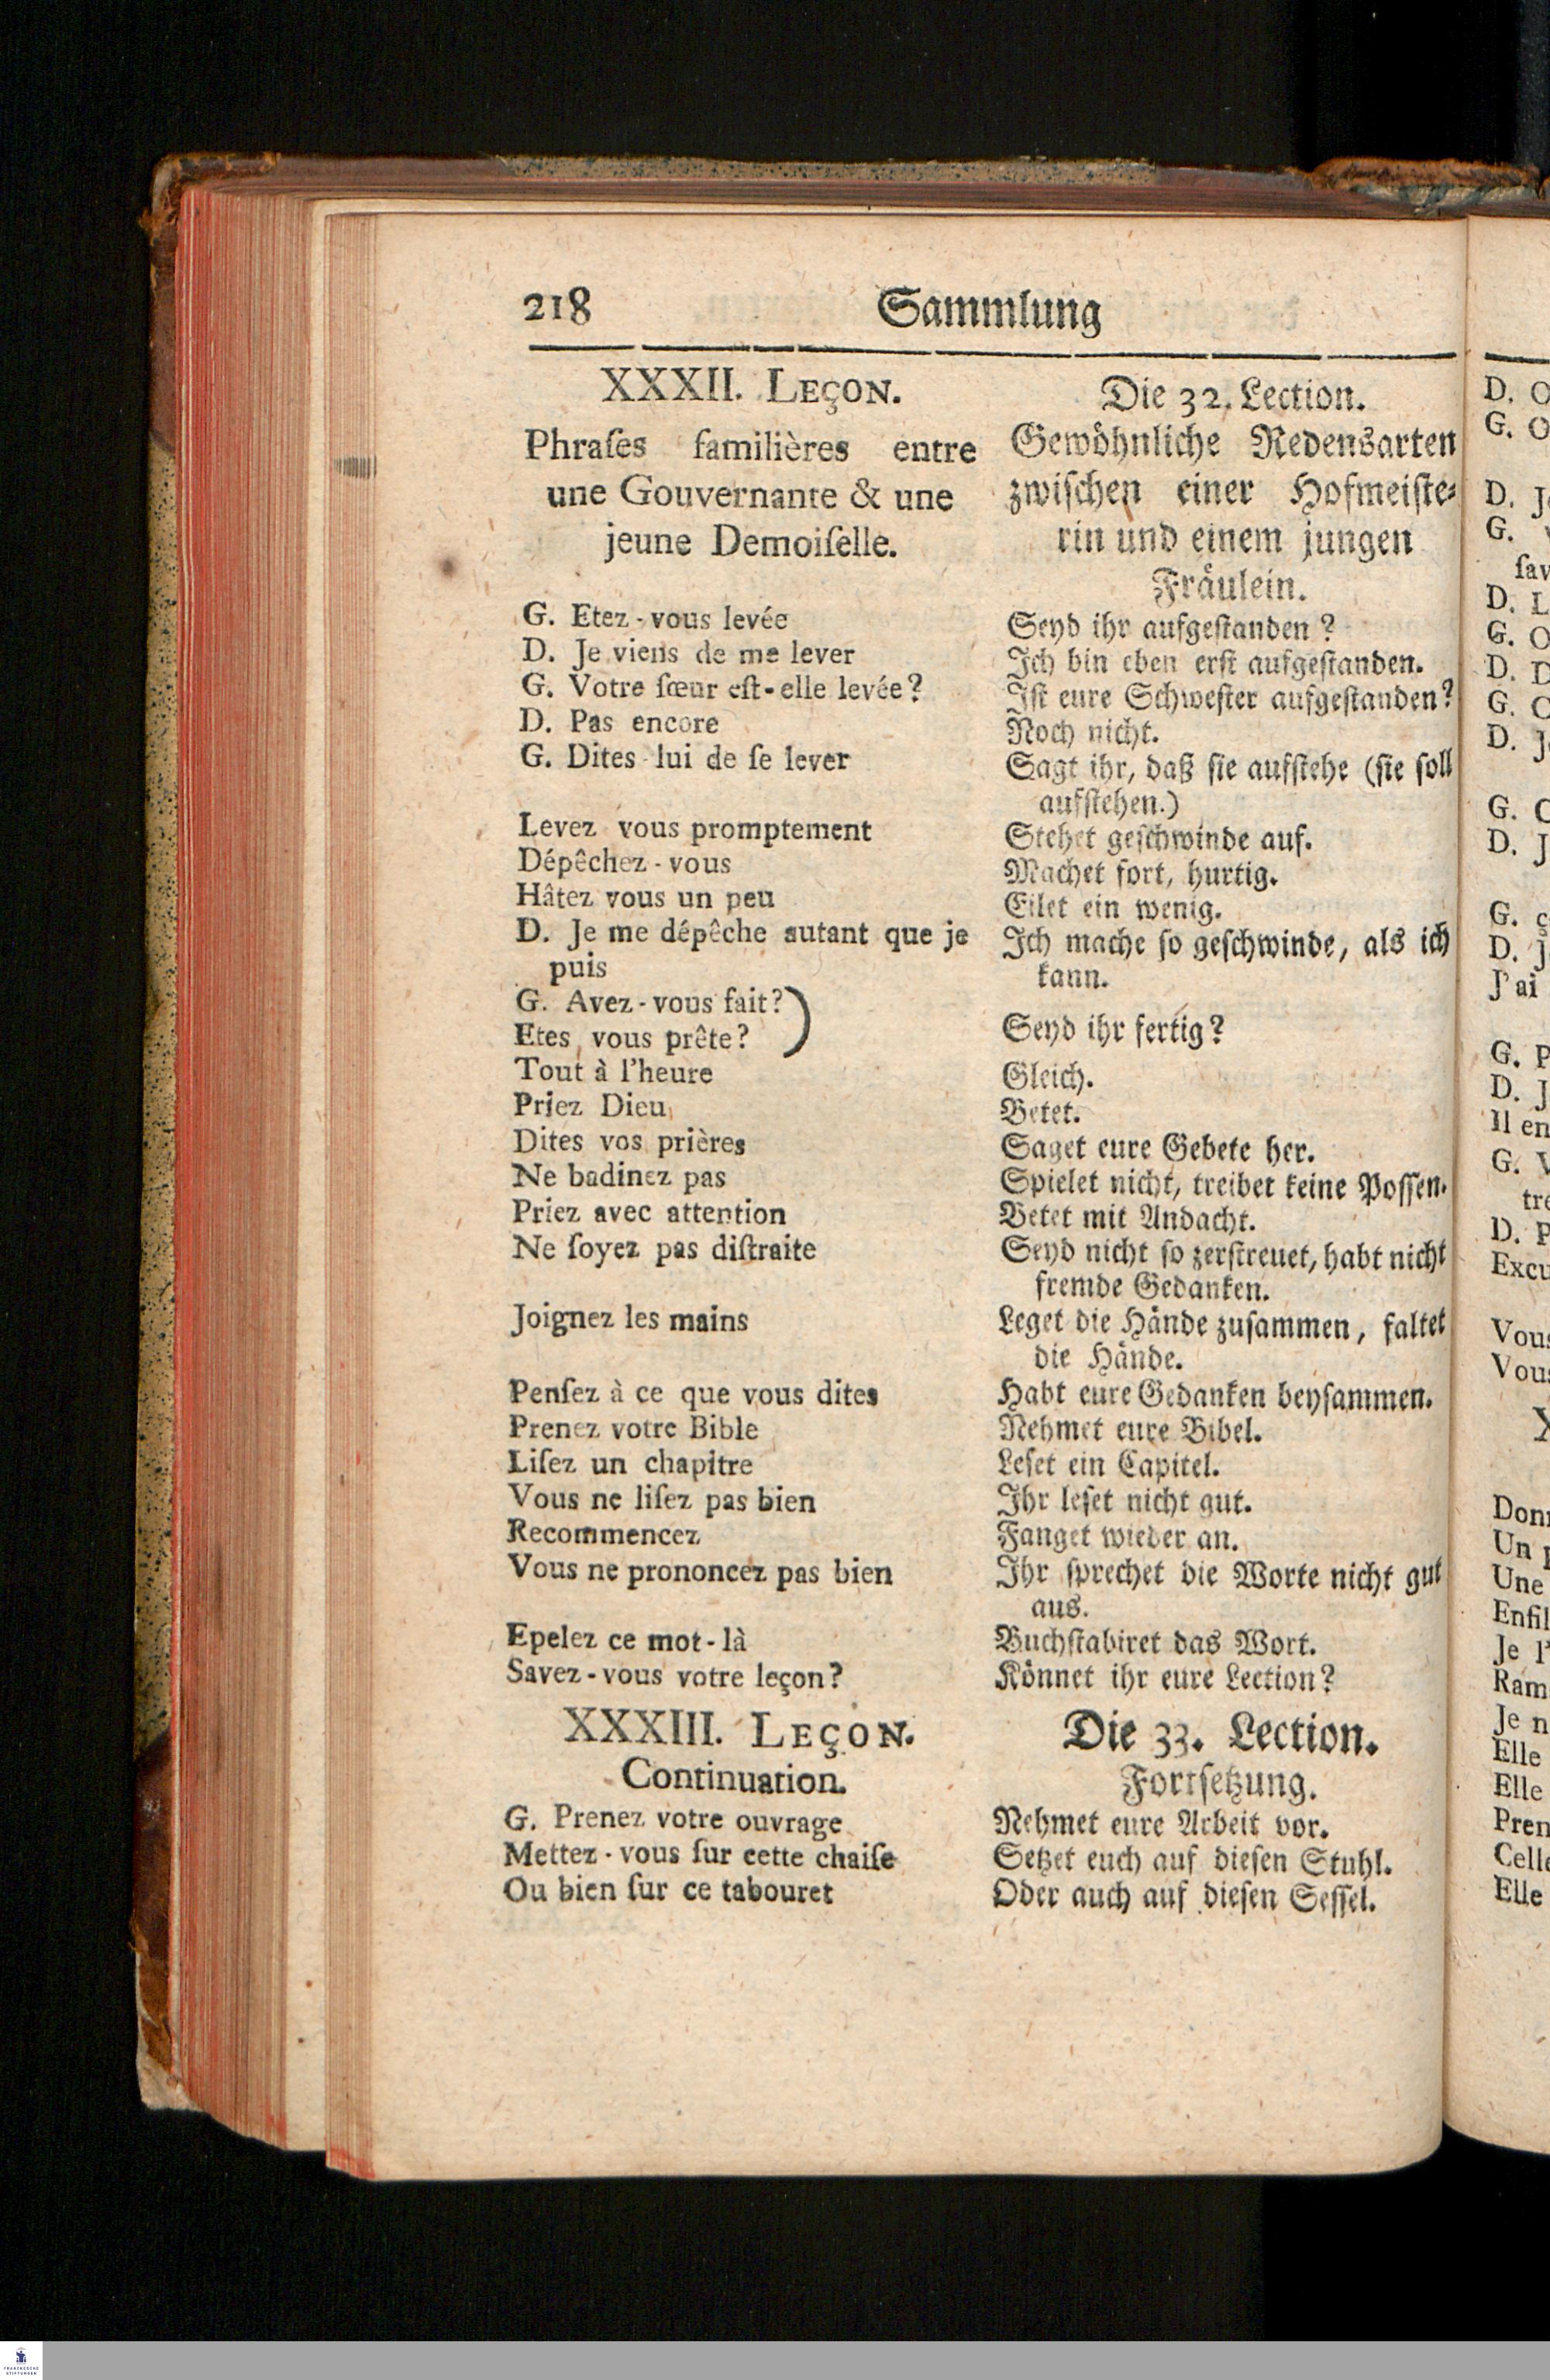 218 Sammlung
XXXII. LEÇON.
Phraſes familières entre
une Gouvernante & une
jeune Demoiſelle.
G. Etez-vous levée
D. Je viens de me lever
G. Votre ſœur eſt-elle levée?
D. Pas encore
G. Dites lui de ſe lever
Levez vous promptement
Dépêchez-vous
Hâtez vous un peu
D. Je me dépêche autant que je
puis
G. Avez-vous fait?)
Etes vous prête?
Tout à l'heure
Priez Dieu
Dites vos prières
Ne badinez pas
Priez avec attention
Ne ſoyez pas diſtraite
Joignez les mains
Penſez à ce que vous dites
Prenez votre Bible
Liſez un chapitre
Vous ne liſez pas bien
Recommencez
Vous ne prononcez pas bien
Epelez ce mot-là
Savez-vous votre leçon?
XXXIII. LEÇON.
Continuation.
G. Prenez votre ouvrage
Mettez-vous ſur cette chaiſe
Ou bien ſur ce tabouret
Die 32. Lection.
Gewöhnliche Redensarten
zwiſchen einer Hofmeiſte-
rin und einem jungen
Fräulein.
Seyd ihr aufgeſtanden?
Ich bin eben erſt aufgeſtanden.
Iſt eure Schweſter aufgeſtanden?
Noch nicht.
Sagt ihr, daß ſie aufſtehe (ſie ſoll
aufſtehen.)
Stehet geſchwinde auf.
Machet fort, hurtig.
Eilet ein wenig.
Ich mache ſo geſchwinde, als ich
kann.
Seyd ihr fertig?
Gleich.
Betet.
Saget eure Gebete her.
Spielet nicht, treibet keine Poſſen.
Betet mit Andacht.
Seyd nicht ſo zerſtreuet, habt nicht
fremde Gedanken.
Leget die Hände zuſammen, faltet
die Hände.
Habt eure Gedanken beyſammen.
Nehmet eure Bibel.
Leſet ein Capitel.
Ihr leſet nicht gut.
Fanget wieder an.
Ihr ſprechet die Worte nicht gut
aus.
Buchſtabiret das Wort.
Könnet ihr eure Lection?
Die 33. Lection.
Fortſetzung.
Nehmet eure Arbeit vor.
Setzet euch auf dieſen Stuhl.
Oder auch auf dieſen Seſſel.
D.
G.
D.
G.
D.
G.
D.
G.
D.
G.
D.
G.
D.
J'ai
G.
D.
Il en
G.
D.
Vous
Vous
Un
Une
Je
Je
Elle
Elle
Elle
FRANCKESCHE
STIFTUNGEN